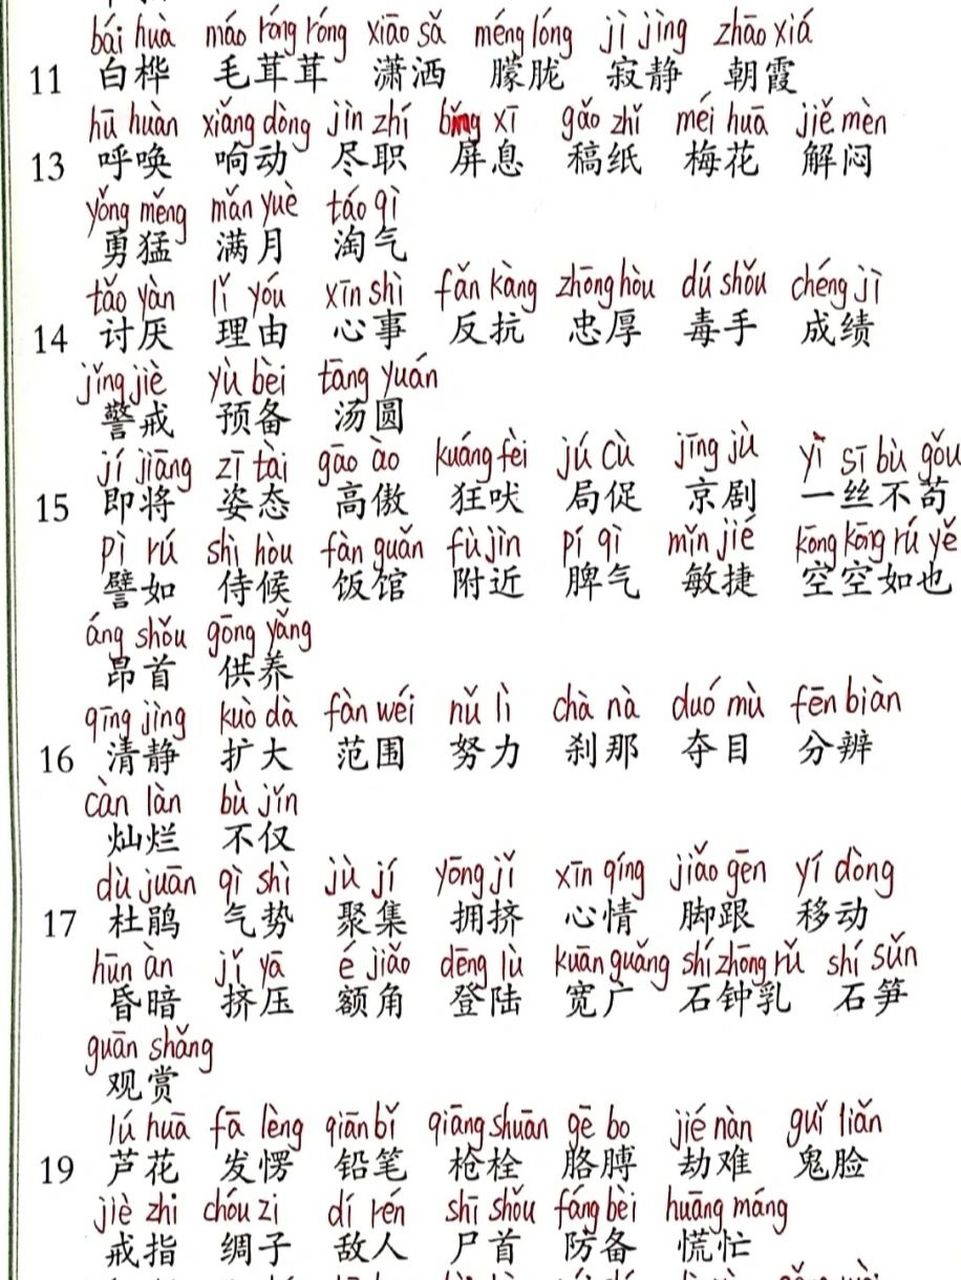 bái huà máo róng róng xiāo sǎ méng lóng jì jìng zhāo xiá
11 白桦 毛茸茸 潇洒 朦胧 寂静 朝霞
hū huàn xiǎng dòng jìn zhí bǐng xī gǎo zhǐ méi huā jiě mèn
13 呼唤 响动 尽职 屏息 稿纸 梅花 解闷
yǒng měng mǎn yuè táo qì
勇猛 满月 淘气
tǎo yàn lǐ yóu xīn shì fǎn kàng zhōng hòu dú shǒu chéng jì
14 讨厌 理由 心事 反抗 忠厚 毒手 成绩
jǐng jiè yù bèi tāng yuán
警戒 预备 汤圆
jí jiāng zī tài gāo ào kuáng fèi jú cù jīng jù yì sī bù gǒu
15 即将 姿态 高傲 狂吠 局促 京剧 一丝不苟
pì rú shì hòu fàn guǎn fù jìn pí qì mǐn jié kōng kōng rú yě
譬如 侍候 饭馆 附近 脾气 敏捷 空空如也
áng shǒu gōng yǎng
昂首 供养
qīng jìng kuò dà fàn wéi nǔ lì chà nà duó mù fēn biàn
16 清静 扩大 范围 努力 刹那 夺目 分辨
càn làn bù jǐn
灿烂 不仅
dù juān qì shì jù jí yōng jǐ xīn qíng jiǎo gēn yí dòng
17 杜鹃 气势 聚集 拥挤 心情 脚跟 移动
hūn àn jǐ yā é jiǎo dēng lù kuān guǎng shí zhōng rǔ shí sǔn
昏暗 挤压 额角 登陆 宽广 石钟乳 石笋
guān shǎng
观赏
lú huā fā lèng qiān bǐ qiāng shuān gē bo jié nàn guǐ liǎn
19 芦花 发愣 铅笔 枪栓 胳膊 劫难 鬼脸
jiè zhi chóu zi dí rén shī shǒu fáng bèi huāng máng
戒指 绸子 敌人 尸首 防备 慌忙